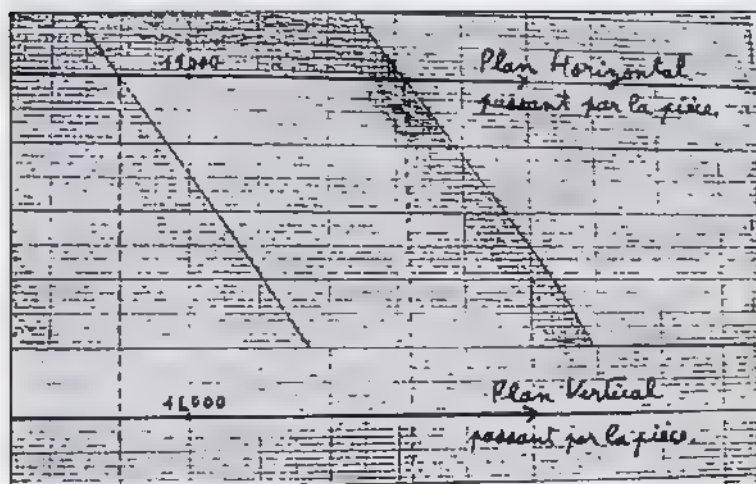 Plan Horizontal
passant par la pièce.
Plan Vertical
passant par la pièce.